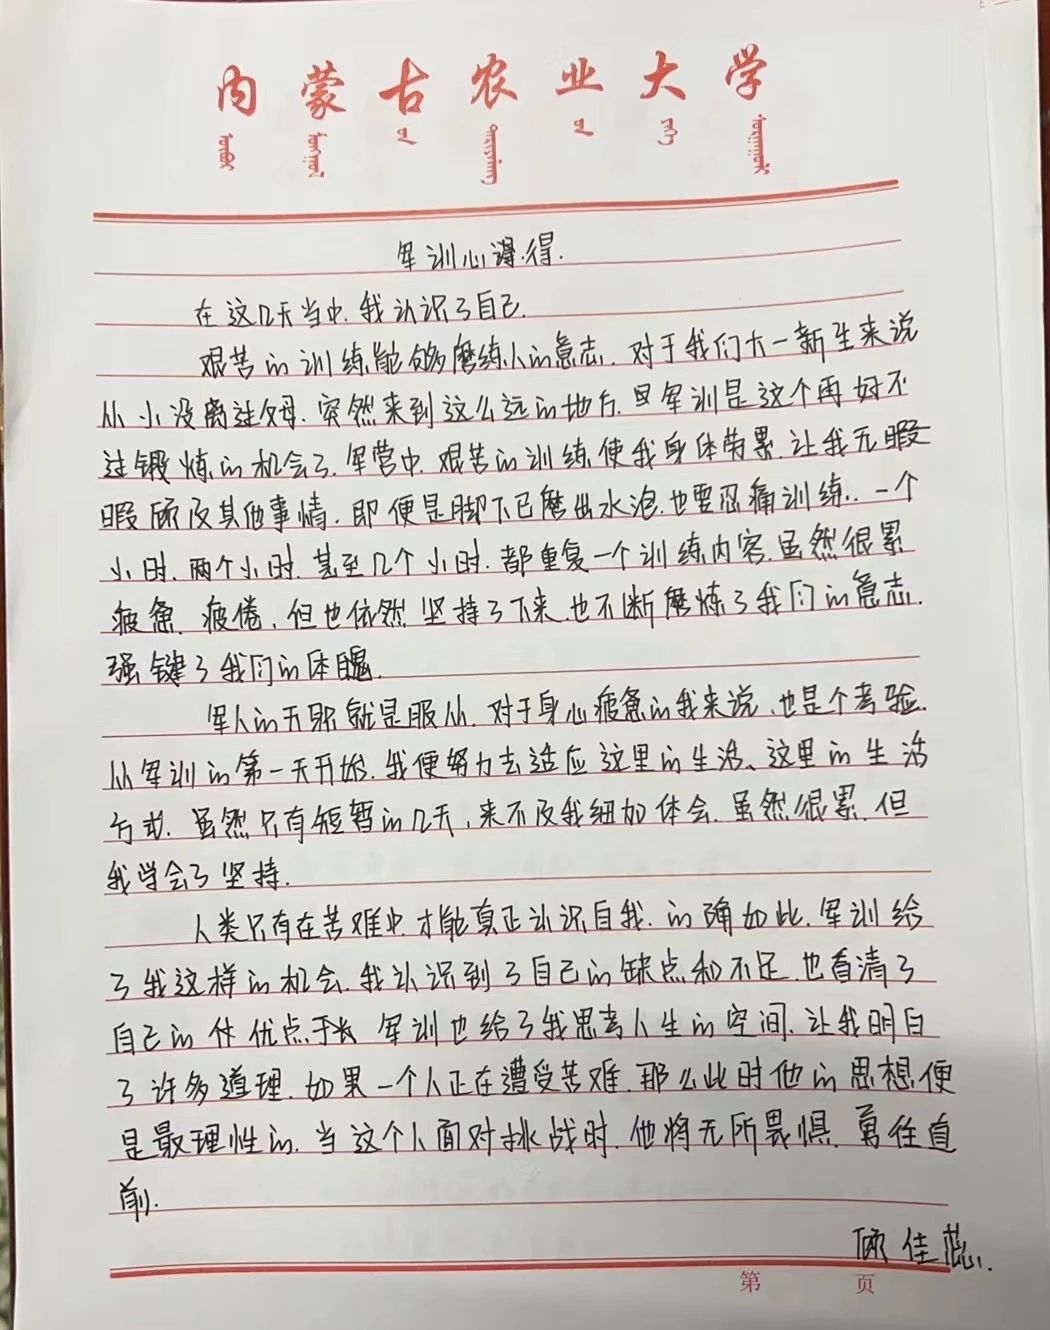 内蒙古农业大学
军训心得.
在这几天当中.我认识了自己.
艰苦的训练能够磨练人的意志.对于我们大一新生来说
从小没离过父母.突然来到这么远的地方.但军训是这个再好不
过锻炼的机会了.军营中.艰苦的训练使我身体劳累.让我无暇
暇顾及其他事情.即便是脚下已磨出水泡.也要忍痛训练..一个
小时.两个小时.甚至几个小时.都重复一个训练内容.虽然很累
疲惫.疲倦,但也依然坚持了下来.也不断磨炼了我们的意志.
强键了我们的体魄.
军人的天职就是服从.对于身心疲惫的我来说、也是个考验.
从军训的第一天开始.我便努力去适应这里的生活、这里的生活
方式.虽然只有短暂的几天,来不及我细加体会.虽然很累.但
我学会了坚持.
人类只有在苦难中.才能真正认识自我.的确如此.军训给
了我这样的机会.我认识到了自己的缺点和不足.也看清了
自己的优点于长 军训也给了我思考人生的空间.让我明白
了许多道理.如果一个人正在遭受苦难.那么此时他的思想便
是最理性的.当这个人面对挑战时.他将无所畏惧.勇往直
前.
顾佳蕊.
第 页